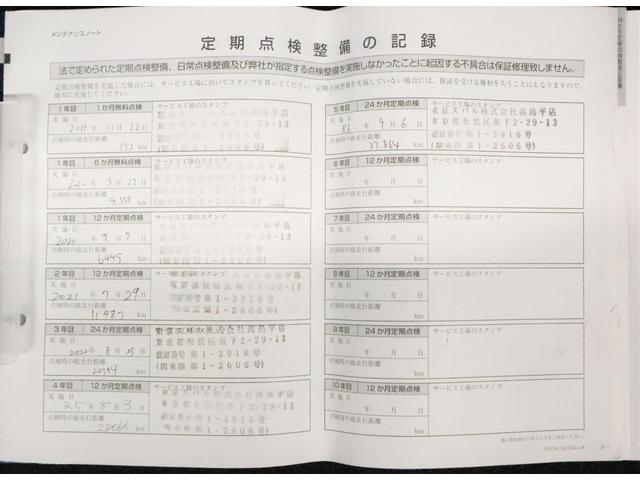 メンテナンスノート
定期点検整備の記録
法で定められた定期点検整備、日常点検整備及び弊社が指定する点検整備を実施しなかったことに起因する不具合は保証修理致しません。
定期点検整備を実施した場合には、サービス工場においてスタンプを貰ってください。定期点検整備を実施していない場合には、保証を受ける権利を失うことにもなりますので、
確実に実施してください。
1年目 1か月無料点検 サービス工場のスタンプ
実施日
2019年11月22日
点検時の総走行距離
732 km
東京スバル株式会社高島平店
東京都板橋区坂下2-29-13
認証番号第1-3916号
(関東指第1-2606号)
1年目 6か月無料点検 サービス工場のスタンプ
実施日
2020年3月27日
点検時の総走行距離
4,558 km
1年目 12か月定期点検 サービス工場のスタンプ
実施日
2020年9月7日
点検時の総走行距離
6445 km
2年目 12か月定期点検 サービス工場のスタンプ
実施日
2021年7月29日
点検時の総走行距離
11,487 km
3年目 24か月定期点検 サービス工場のスタンプ
実施日
2022年8月25日
点検時の総走行距離
km
東京スバル株式会社高島平店
東京都板橋区坂下2-29-13
認証番号第1-3916号
(関東指第1-2606号)
4年目 12か月定期点検 サービス工場のスタンプ
実施日
R5年8月3日
点検時の総走行距離
28066 km
東京スバル株式会社高島平店
東京都板橋区坂下2-29-13
認証番号第1-3916号
(関東指第1-2606号)
5年目 24か月定期点検 サービス工場のスタンプ
実施日
R6年9月6日
点検時の総走行距離
37.864 km
東京スバル株式会社高島平店
東京都板橋区坂下2-29-13
認証番号第1-3916号
(関東指第1-2606号)
6年目 12か月定期点検 サービス工場のスタンプ
実施日
年 月 日
点検時の総走行距離
km
7年目 24か月定期点検 サービス工場のスタンプ
実施日
年 月 日
点検時の総走行距離
km
8年目 12か月定期点検 サービス工場のスタンプ
実施日
年 月 日
点検時の総走行距離
km
9年目 24か月定期点検 サービス工場のスタンプ
実施日
年 月 日
点検時の総走行距離
km
10年目 12か月定期点検 サービス工場のスタンプ
実施日
年 月 日
点検時の総走行距離
km